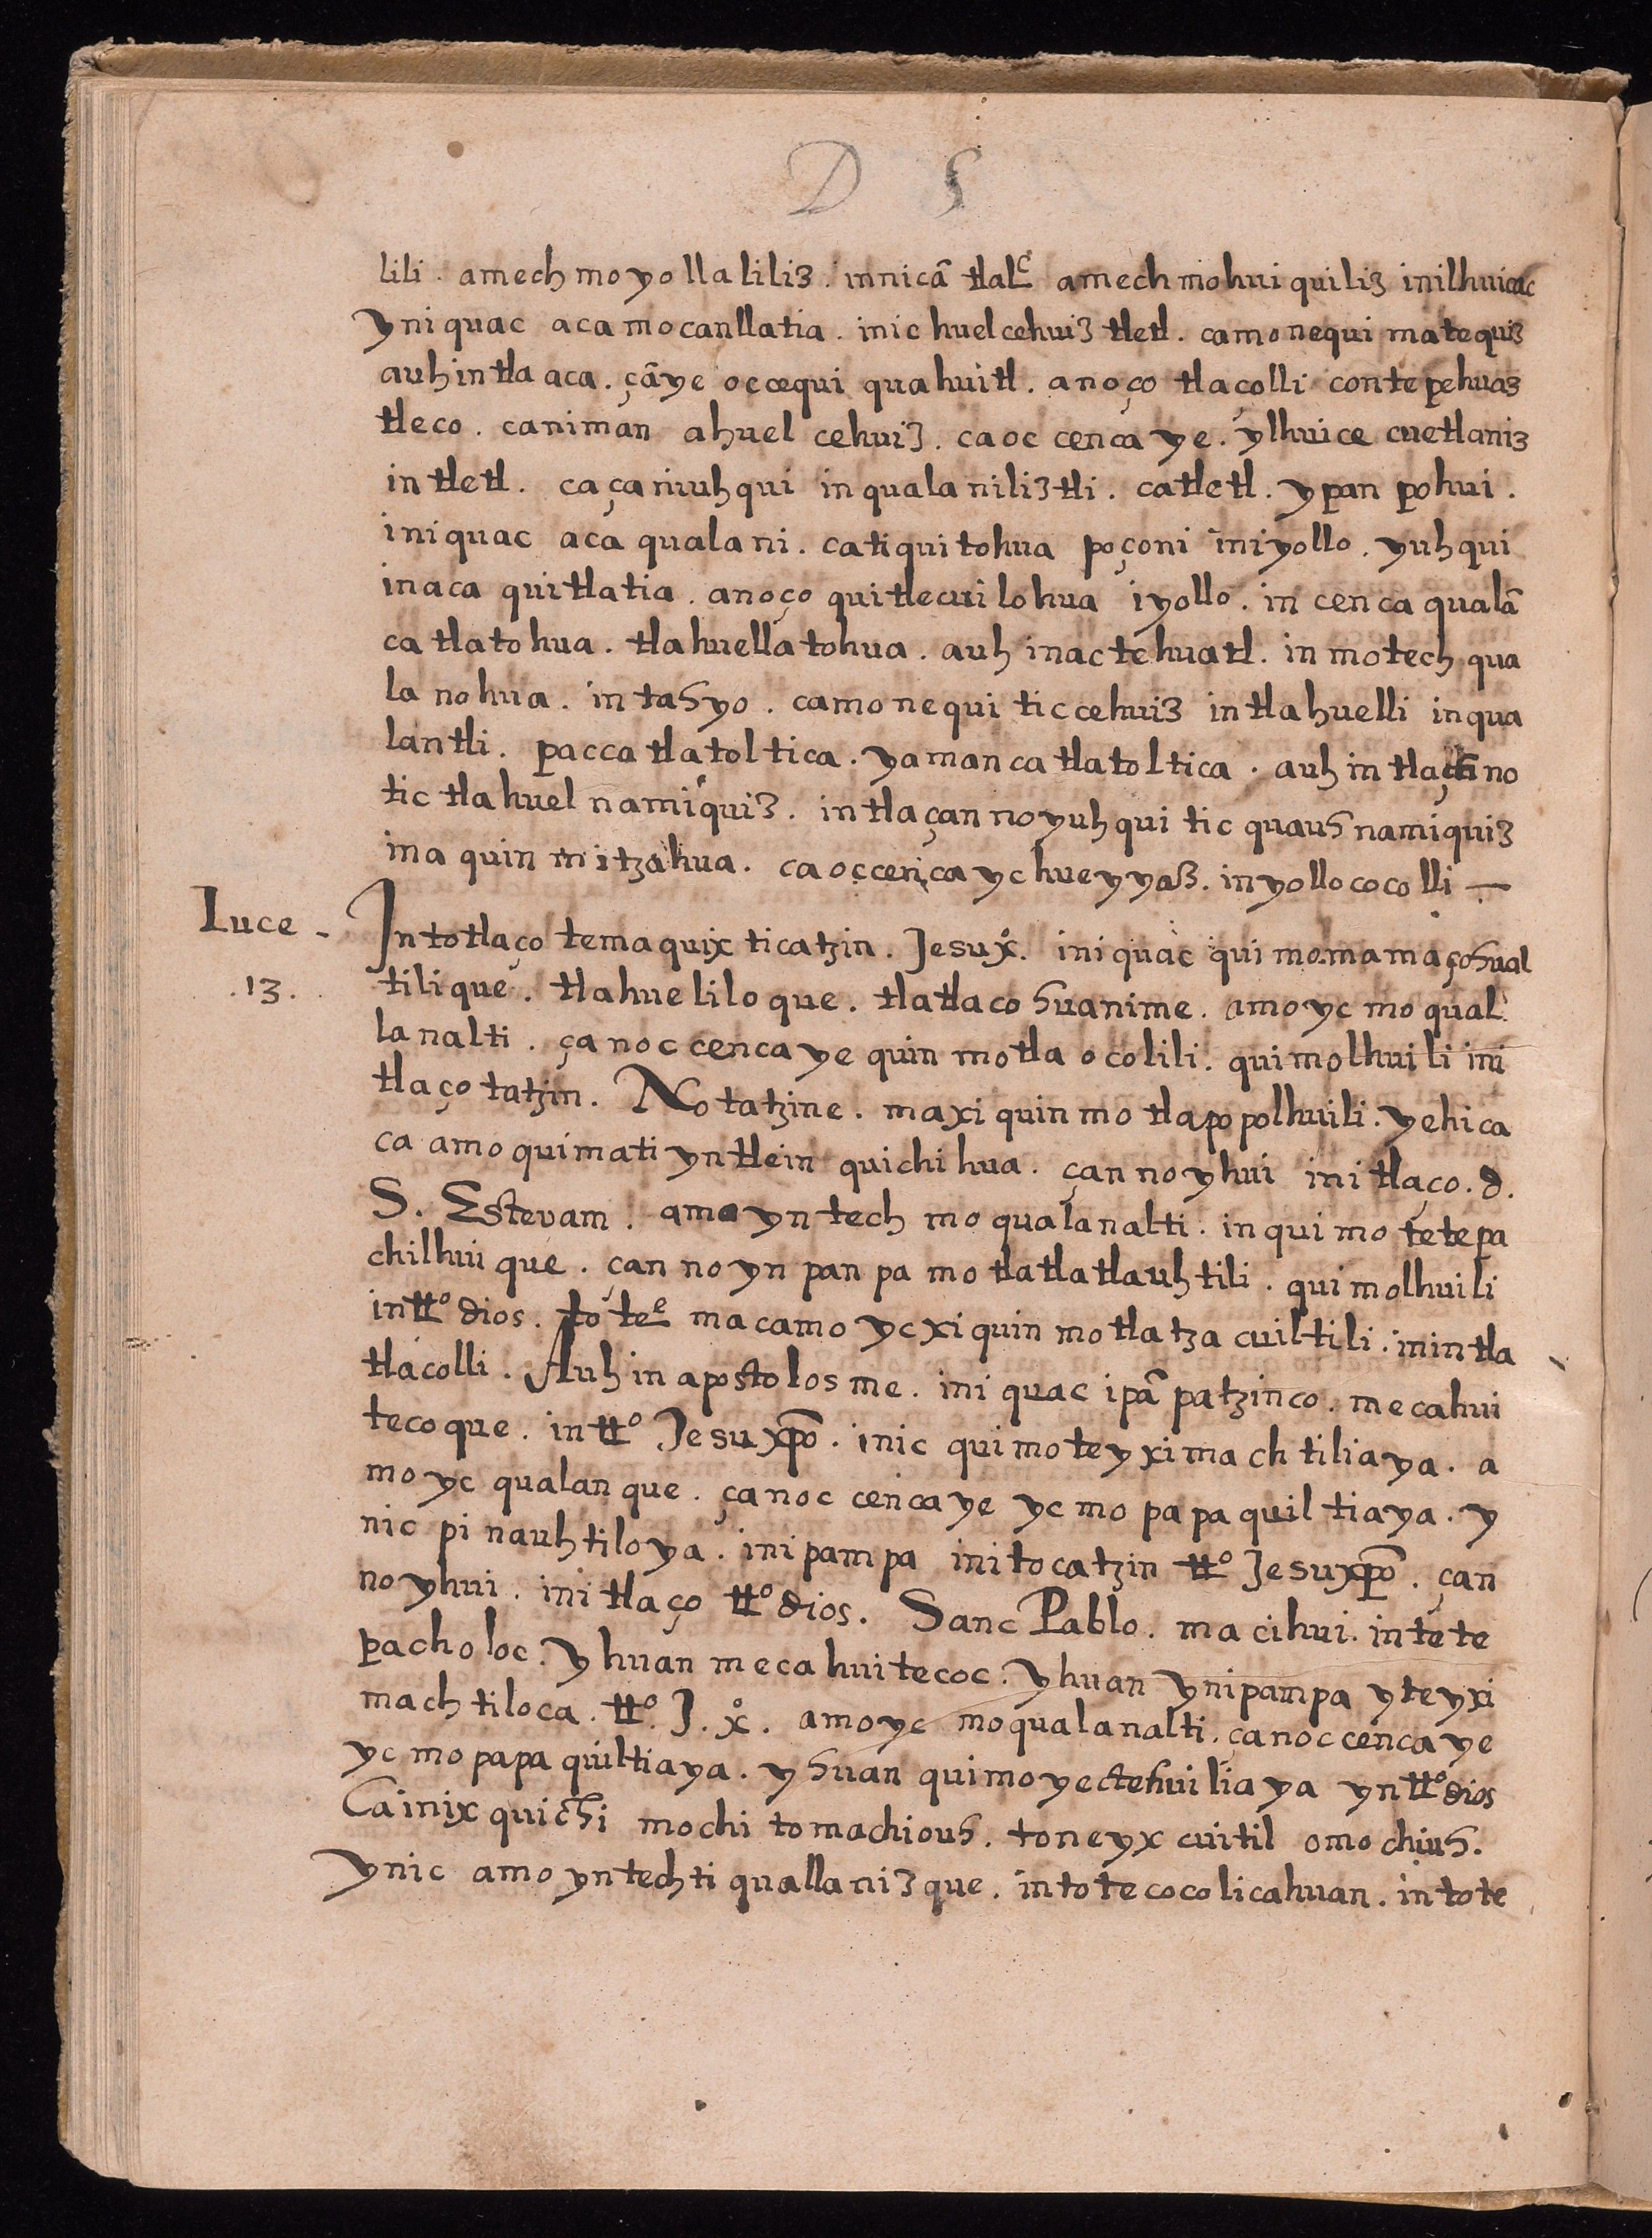 D S
lili. amech moyollaliliz. innicā tlalᶜ amech mohui quiliz inilhuicac
yniquac aca mocanllatia. inic huelcehuiz tletl. camonequi matequiz
auh intla aca. çāye occequi quahuitl. anoço tlaçolli contepehuaz
tleco. caniman ahuel cehuiz. caoc cenca ye. ylhuice cuetlaniz
in tletl. caçaniuhqui inqualaniliztli. catletl. ypan pohui.
iniquac aca qualani. catiquitohua poçoni iniyollo. yuhqui
inaca quitlatia. anoço quitlecuilohua iyollo. in cenca qualā
ca tlatohua. tlahuellatohua. auh inactehuatl. in motech qua
lanohua. intahyo. camonequi ticcehuiz intlahuelli inqua
lantli. pacca tlatoltica. yamanca tlatoltica. auh in tlaçā no
tic tlahuelnamiquiz. intlaçan noyuhqui tic quauhnamiquiz
ina quin mitzahua. caoccença yc huey yaz. inyollococolli —
Luce - 13.
In totlaço temaquixticatzin. Jesux̊. iniquac quimomamaçohual
tilique. tlahueliloque. tlatlacohuanime. amo yc moqual
lanalti. çanoc cencaye quin motlaocolili. quimolhuili ini
tlaço tatzin. Notatzine. maxiquinmotlapopolhuili. yehica
ca amo quimati yntlein quichihua. çan noyhui initlaço. d.
S. Estevam. amo yntech moqualanalti. inquimotetepa
chilhuique. çan no yn panpa motlatlatlauhtili. quimolhuili
intt⁰ dios. toteᵉ macamo ycxiquinmotlatzacuiltili. inintla
tlacolli. Auh in apostolosme. iniquac ipāpatzinco. mecahui
tecoque. intt⁰ Jesuxp̄o. inic quimoteyximachtiliaya. a
mo yc qualanque. çanoc cencaye yc mopapaquiltiaya. y
nic pinauhtiloya. inipampa initocatzin tt⁰ Jesuxp̄o. çan
noyhui. initlaço tt⁰ dios. Sanc Pablo. macihui. intete
pacholoc. yhuan mecahuitecoc. yhuan ynipampa yteyxi
machtiloca. tt⁰. J. x̊. amo yc moqualanalti. çanoccencaye
yc mopapaquiltiaya. yhuan quimoyectehuiliaya yntt⁰ dios
Cainixquichi mochi tomachiouh. toneyxcuitil omochiuh.
ynic amo yntech tiquallanizque. intotecocolicahuan. intote